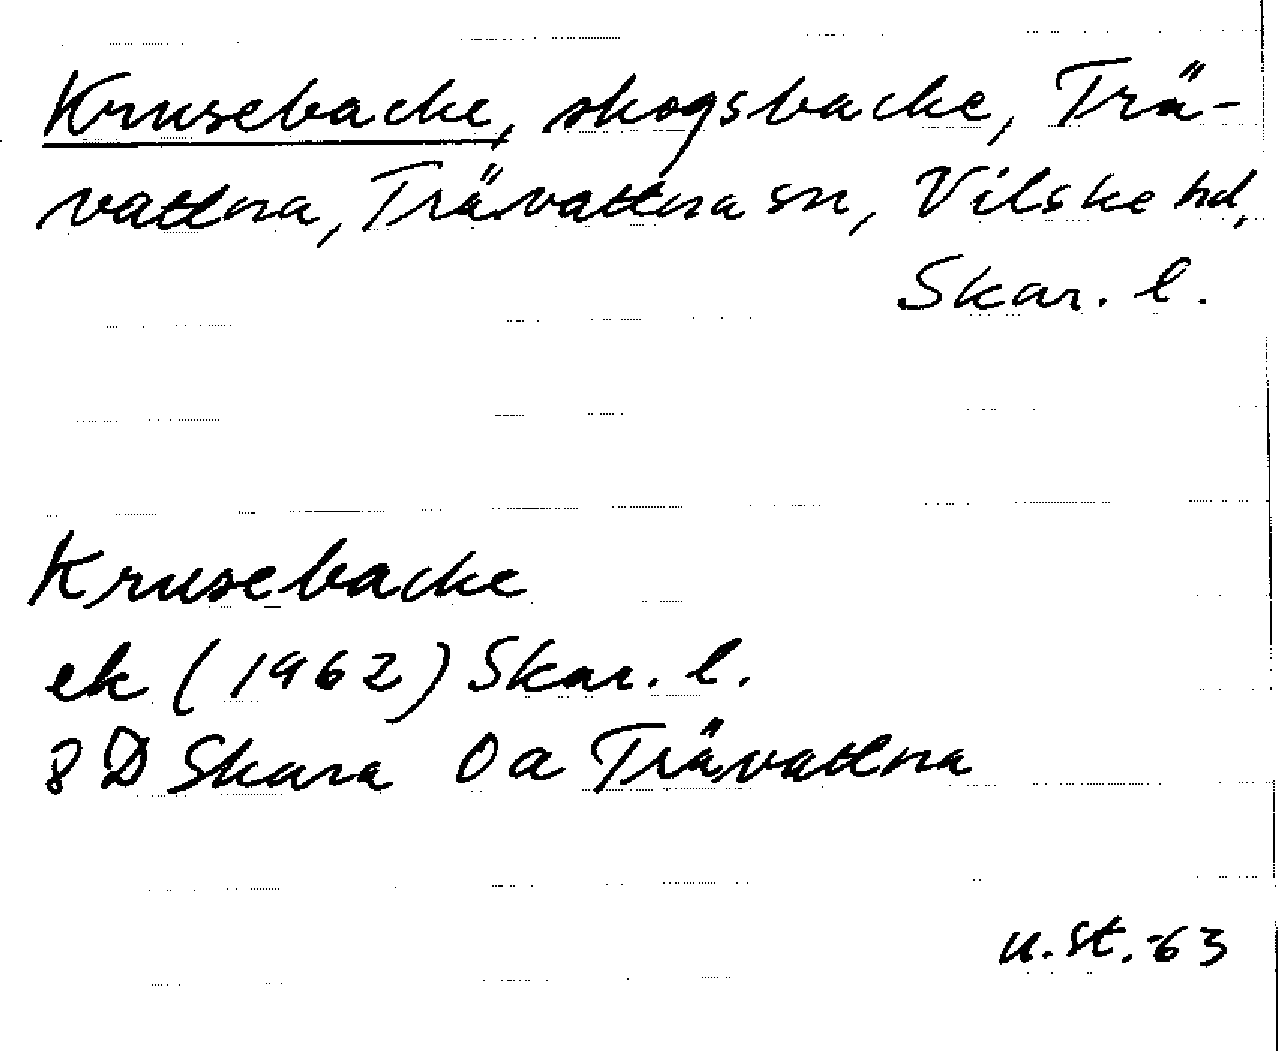 Krusebacke, skogsbacke, Trä-
vattna, Trävattna sn, Vilske hd,
Skar. l.
Krusebacke
ek (1962) Skar. l.
8D Skara 0a Trävattna
u.st.-63